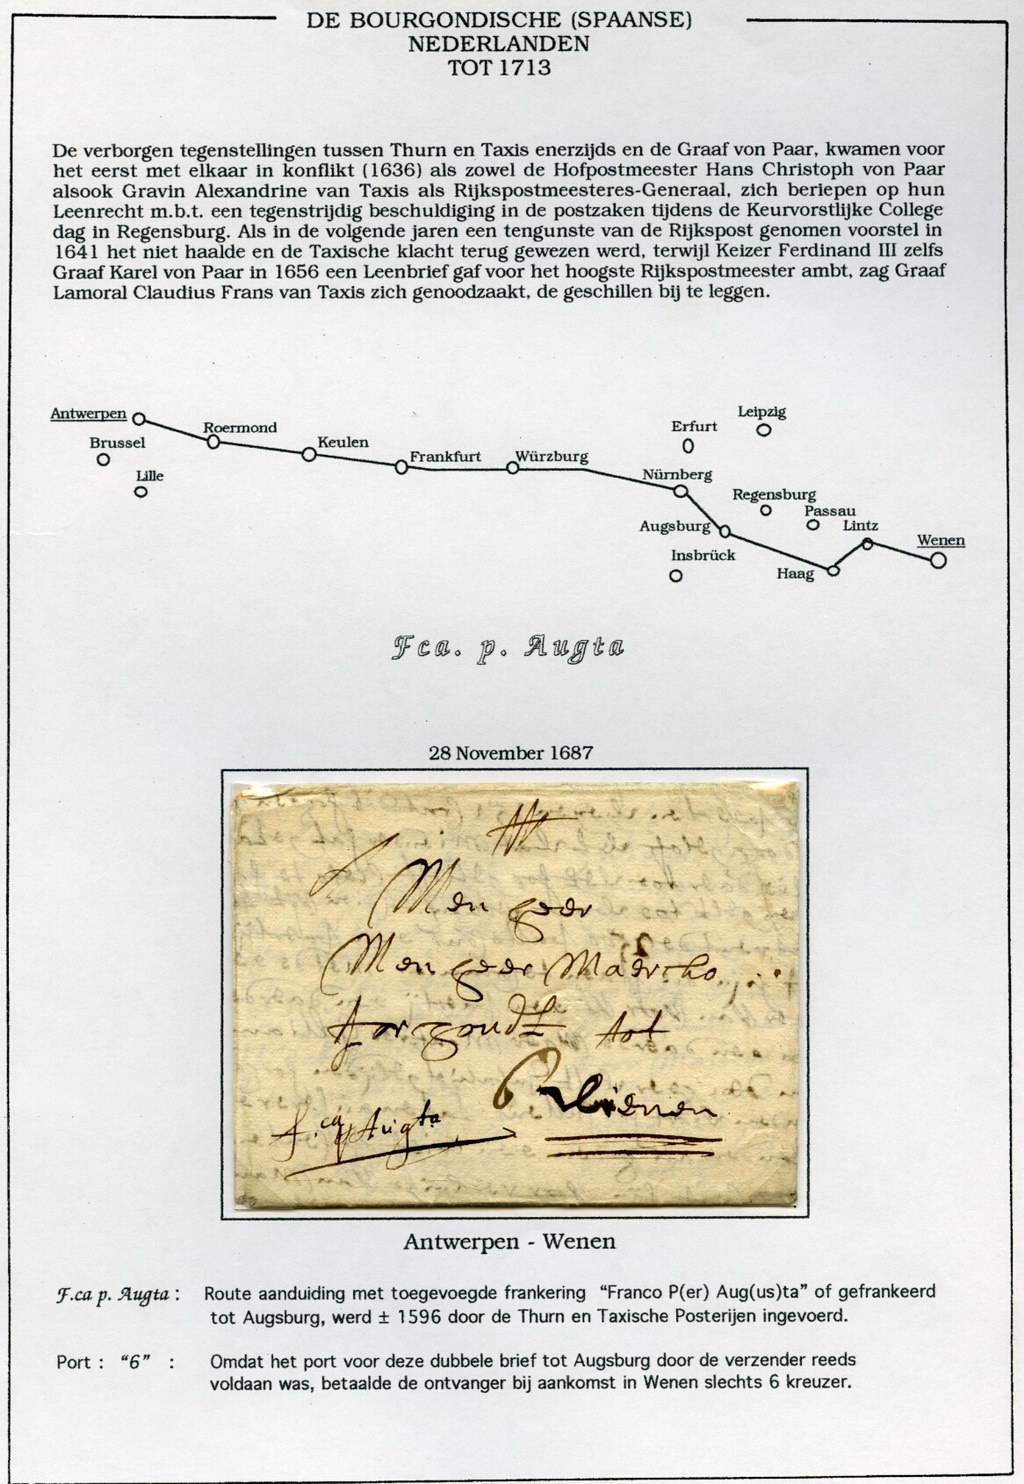 DE BOURGONDISCHE (SPAANSE)
NEDERLANDEN
TOT 1713
De verborgen tegenstellingen tussen Thurn en Taxis enerzijds en de Graaf von Paar, kwamen voor
het eerst met elkaar in konflikt (1636) als zowel de Hofpostmeester Hans Christoph von Paar
alsook Gravin Alexandrine van Taxis als Rijkspostmeesteres-Generaal, zich beriepen op hun
Leenrecht m.b.t. een tegenstrijdig beschuldiging in de postzaken tijdens de Keurvorstlijke College
dag in Regensburg. Als in de volgende jaren een tengunste van de Rijkspost genomen voorstel in
1641 het niet haalde en de Taxische klacht terug gewezen werd, terwijl Keizer Ferdinand III zelfs
Graaf Karel von Paar in 1656 een Leenbrief gaf voor het hoogste Rijkspostmeester ambt, zag Graaf
Lamoral Claudius Frans van Taxis zich genoodzaakt, de geschillen bij te leggen.
Antwerpen
Brussel
Lille
Roermond
Keulen
Frankfurt
Würzburg
Erfurt
Leipzig
Nürnberg
Regensburg
Passau
Augsburg
Lintz
Wenen
Insbrück
Haag
Fca. p. Augta
28 November 1687
Men heer
Men heer Maercko
tot
6 Wienen
f.ca p Augta
Antwerpen - Wenen
F.ca p. Augta : Route aanduiding met toegevoegde frankering "Franco P(er) Aug(us)ta" of gefrankeerd
tot Augsburg, werd ± 1596 door de Thurn en Taxische Posterijen ingevoerd.
Port : "6" : Omdat het port voor deze dubbele brief tot Augsburg door de verzender reeds
voldaan was, betaalde de ontvanger bij aankomst in Wenen slechts 6 kreuzer.